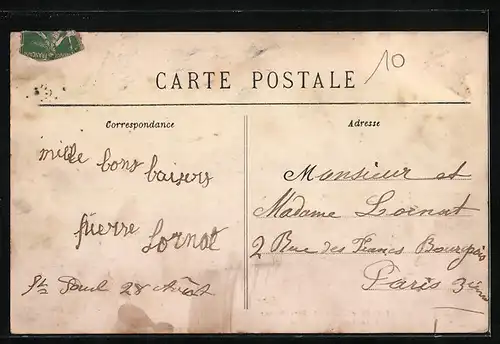 10
CARTE POSTALE
Correspondance
Adresse
mille bons baisers
pierre Lornat
St Paul 28 Août
Monsieur et
Madame Lornat
2 Rue des Francs Bourgeois
Paris 3ième